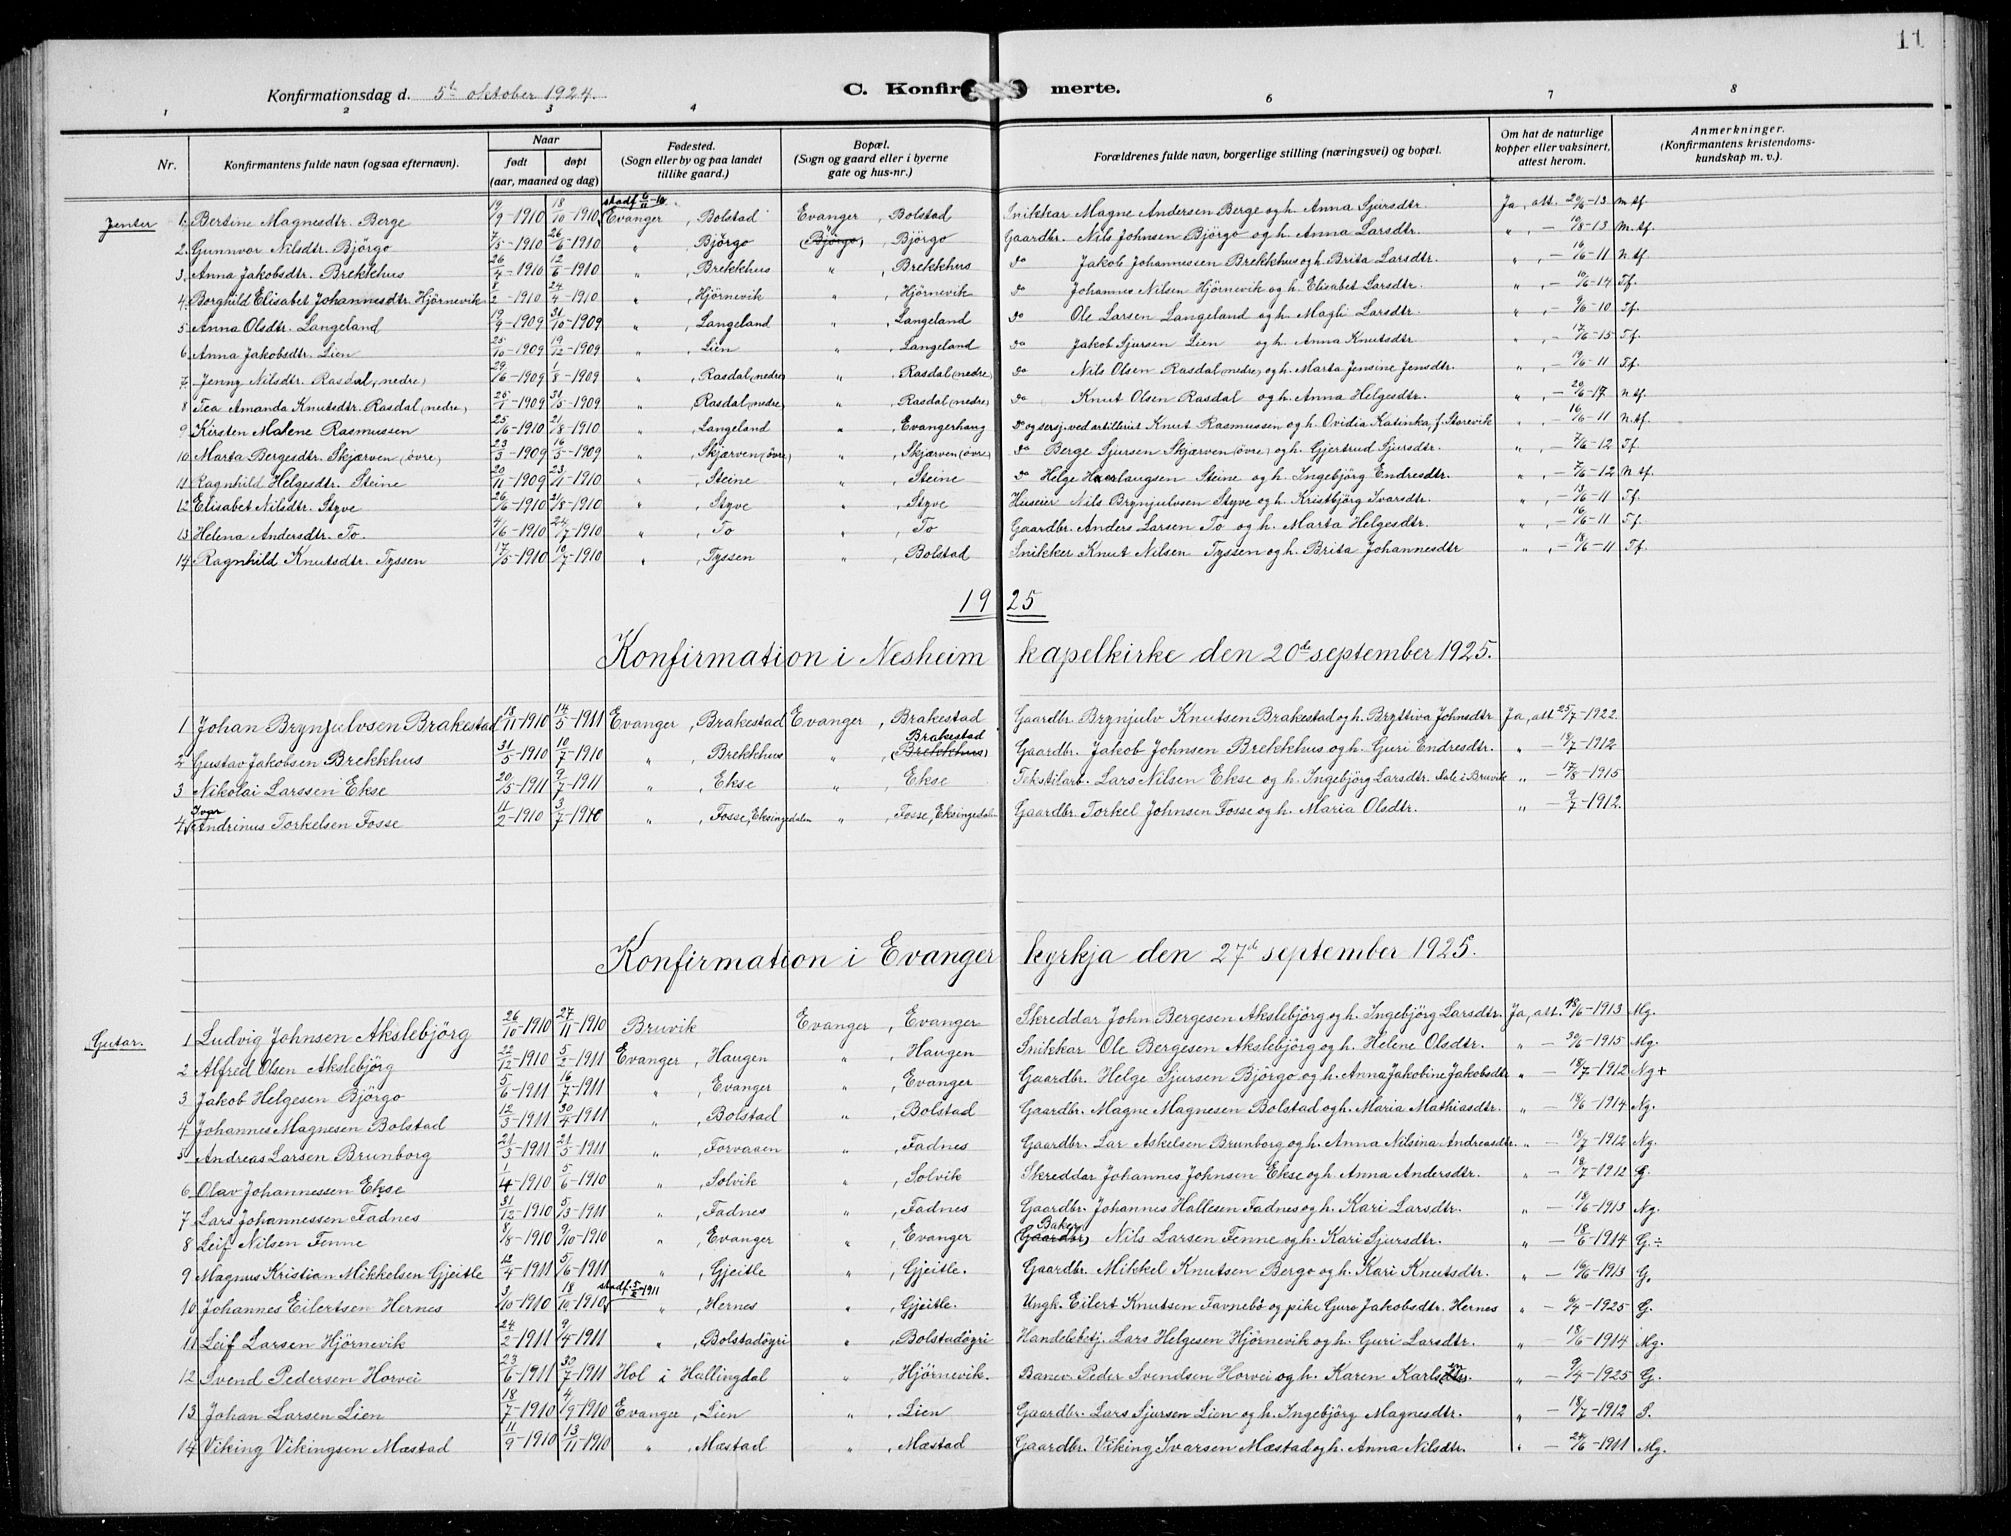 11
Konfirmationsdag d. 5te oktober 1924. C. Konfirmerte.
1 2 3 4 6 7 8
Nr. Konfirmantens fulde navn (ogsaa efternavn). Naar født døpt (aar, maaned og dag) Fødested. (Sogn eller by og paa landet tillike gaard.) Bopæl. (Sogn og gaard eller i byerne gate og hus-nr.) Forældrenes fulde navn, borgerlige stilling (næringsvei) og bopæl. Om hat de naturlige kopper eller vaksinert, attest herom. Anmerkninger. (Konfirmantens kristendomskundskap m. v.)
Jenter 1. Bertine Magnesdtr. Berge 19/9-1910 18/10-1910 stadf. 6/11-10 Evanger, Bolstad Evanger, Bolstad Snikkar Magne Andersen Berge og h. Anna Sjursdtr. Ja, att. 20/6-13 M tf.
2. Gunnvor Nilsdtr. Björgo 7/5-1910 26/6-1910 " , Björgo (Björgo), Björgo Gaardbr. Nils Johnsen Björgo og h. Anna Larsdtr. " , - 10/8-13 M. tf.
3. Anna Jakobsdtr. Brekkhus 26/4-1910 12/6-1910 " , Brekkhus " , Brekkhus do Jakob Johannessen Brekkhus og h. Brita Larsdtr. " , - 16/6-11 N tf.
4. Borghild Elisabet Johannesdtr. Hjörnevik 8/2-1910 24/4-1910 " , Hjörnevik " , Hjörnevik do Johannes Nilsen Hjörnevik og h. Elisabet Larsdtr. " , - 10/6-14 Tf.
5 Anna Olsdtr. Langeland 19/9-1909 31/10-1909 " , Langeland " , Langeland do Ole Larsen Langeland og h. Magli Larsdtr. " , - 9/6-10 Tf.
6 Anna Jakobsdtr. Lien 25/10-1909 19/12-1909 " , Lien " , Langeland do Jakob Sjursen Lien og h. Anna Knutsdtr. " , - 17/6-15 Tf.
7. Jenny Nilsdtr. Rasdal (nedre) 29/6-1909 1/8-1909 " , Rasdal (nedre) " , Rasdal (nedre) do Nils Olsen Rasdal (nedre) og h. Marta Jensine Jensdtr. " , - 19/6-11 Tf.
8 Tea Amanda Knutsdtr. Rasdal (nedre) 25/1-1909 31/5-1909 " , Rasdal (nedre) " , Rasdal (nedre) do Knut Olsen Rasdal og h. Anna Helgesdtr. " , - 20/6-17 N tf.
9 Kirsten Malene Rasmussen 25/6-1910 21/8-1910 " , Langeland " , Evangerhang do og sersj. ved artilleriet Knut Rasmussen og h. Ovidia Katinka, f. Storevik " , - 16/6-11 N tf.
10 Marta Bergesdtr. Skjærven (övre) 23/3-1909 16/5-1909 " , Skjærven (övre) " , Skjærven (övre) do Berge Sjursen Skjærven (övre) og h. Gjertrud Sjursdtr. " , - 7/6-12 Tf.
11 Ragnhild Helgesdtr. Steine 20/11-1909 23/1-1910 " , Steine " , Steine do Helge Haerlaugsen Steine og h. Ingebjörg Endresdtr. " , - 7/6-12 N tf.
12 Elisabet Nilsdtr. Styve 26/6-1910 21/8-1910 " , Styve " , Styve Huseier Nils Brynjulvsen Styve og h. Kristbjörg Ivarsdtr. " , - 13/6-11 Tf.
13 Helena Andersdtr. To. 4/6-1910 24/7-1910 " , To " , To Gaardbr. Anders Larsen To og h. Marta Helgesdtr. " , - 16/6-11 Tf.
14 Ragnhild Knutsdtr. Tyssen 17/5-1910 10/7-1910 " , Tyssen " , Bolstad Snikker Knut Nilsen Tyssen og h. Brita Johannesdtr " , - 18/6-11 Tf.
1925
Konfirmation i Nesheim kapelkirke den 20de september 1925.
1 Johan Brynjulvsen Brakestad 18/11-1910 14/5-1911 Evanger, Brakestad Evanger, Brakestad Gaardbr. Brynjulv Knutsen Brakestad og h. Bryttiva Johnsdtr Ja, att. 25/7-1922.
2 Gustav Jakobsen Brekkhus 31/5-1910 10/7-1910 " , Brekkhus " , Brakestad (Brekkhus) Gaardbr. Jakob Johnsen Brekkhus og h. Guri Endresdtr. " - 18/7-1912
3 Nikolai Larssen Ekse 20/5-1911 9/7-1911 " , Ekse " , Ekse Tekstilarb. Lars Nilsen Ekse og h. Ingebjörg Larsdtr. Dale i Bruvik " - 17/8-1915
4 Ivar Andrinus Torkelsen Fosse 11/2-1910 3/7-1910 " , Fosse, Eksingedalen " , Fosse, Eksingedalen Gaardbr. Torkel Johnsen Fosse og h. Maria Olsdtr. " - 9/7-1912.
Konfirmation i Evanger kyrkja den 27de september 1925.
Gutar. 1 Ludvig Johnsen Akslebjörg 26/10-1910 27/11-1910 Bruvik Evanger, Evanger Skreddar John Bergesen Akslebjörg og h. Ingebjörg Larsdtr. Ja, att. 18/6-1913 Mg.
2 Alfred Olsen Akslebjörg 22/12-1910 5/2-1911 Evanger, Haugen " , Haugen Snikkar Ole Bergesen Akslebjörg og h. Helene Olsdtr. " - 30/6-1915 Mg.
3 Jakob Helgesen Björgo 5/6-1911 16/7-1911 " , Evanger " , Evanger Gaardbr. Helge Sjursen Björgo og h. Anna Jakobine Jakobsdtr " - 18/7-1912 Ng+
4 Johannes Magnesen Bolstad 12/3-1911 30/4-1911 " , Bolstad " , Bolstad Gaardbr. Magne Magnesen Bolstad og h. Maria Mathiasdtr. " - 18/6-1914 Ng.
5 Andreas Larsen Brunborg 21/3-1911 21/5-1911 " , Forvaaen " , Fadnes Gaardbr. Lar Askelsen Brunborg og h. Anna Nilsina Andreasdtr. " - 18/7-1912 Ng.
6 Olav Johannessen Ekse 1/4-1910 5/6-1910 " , Solvik " , Solvik Skreddar Johannes Johnsen Ekse og h. Anna Andersdtr. " - 18/7-1912 G.
7 Lars Johannessen Fadnes 31/12-1910 5/3-1911 " , Fadnes " , Fadnes Gaardbr. Johannes Hallesen Fadnes og h. Kari Larsdtr. " - 18/6-1913 Ng.
8 Leif Nilsen Fenne 8/8-1910 9/10-1910 " , Evanger " , Evanger Baker (Gaardbr) Nils Larsen Fenne og h. Kari Sjursdtr. " - 18/6-1914 G.÷
9 Magnus Kristian Mikkelsen Gjeitle 12/4-1911 5/6-1911 " , Gjeitle " , Gjeitle. Gaardbr. Mikkel Knutsen Bergo og h. Kari Knutsdtr. " - 16/6-1913 G.
10 Johannes Eilertsen Hernes 3/10-1910 18/10-1910 stadf. 5/2-1911 " , Hernes " , Gjeitle. Ungk. Eilert Knutsen Favnebö og pike Guro Jakobsdtr. Hernes " - 9/4-1925 G.
11 Leif Larsen Hjörnevik 24/2-1911 9/4-1911 " , Bolstadöyri " , Bolstadöyri Handelsbetj. Lars Helgesen Hjörnevik og h. Guri Larsdtr. " - 18/6-1914 Mg.
12 Svend Pedersen Horvei 23/6-1911 30/7-1911 Hol i Hallingdal " , Hjörnevik. Banev. Peder Svendsen Horvei og h. Karen Karlsdtr. " - 9/4-1925 G.
13 Johan Larsen Lien 18/7-1910 4/9-1910 Evanger, Lien " , Lien Gaardbr. Lars Sjursen Lien og h. Ingebjörg Magnesdtr. " - 18/7-1912 S.
14 Viking Vikingsen Mæstad 11/9-1910 13/11-1910 " , Mæstad " , Mæstad Gaardbr. Viking Ivarsen Mæstad og h. Anna Nilsdtr. " - 24/6-1911 Mg.